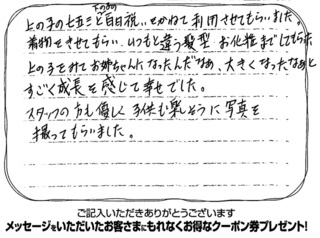 下の子の
上の子の七五三と百日祝いをかねて利用させてもらいました。
着物をさせてもらい、いつもと違う髪型、お化粧までしてもらった
上の子をみてお姉ちゃんになったんだなあ、大きくなったなあと
すごく成長を感じて幸せでした。
スタッフの方も優しく子供も楽しそうに写真を
撮ってもらいました。
ご記入いただきありがとうございます
メッセージをいただいたお客さまにもれなくお得なクーポン券プレゼント!